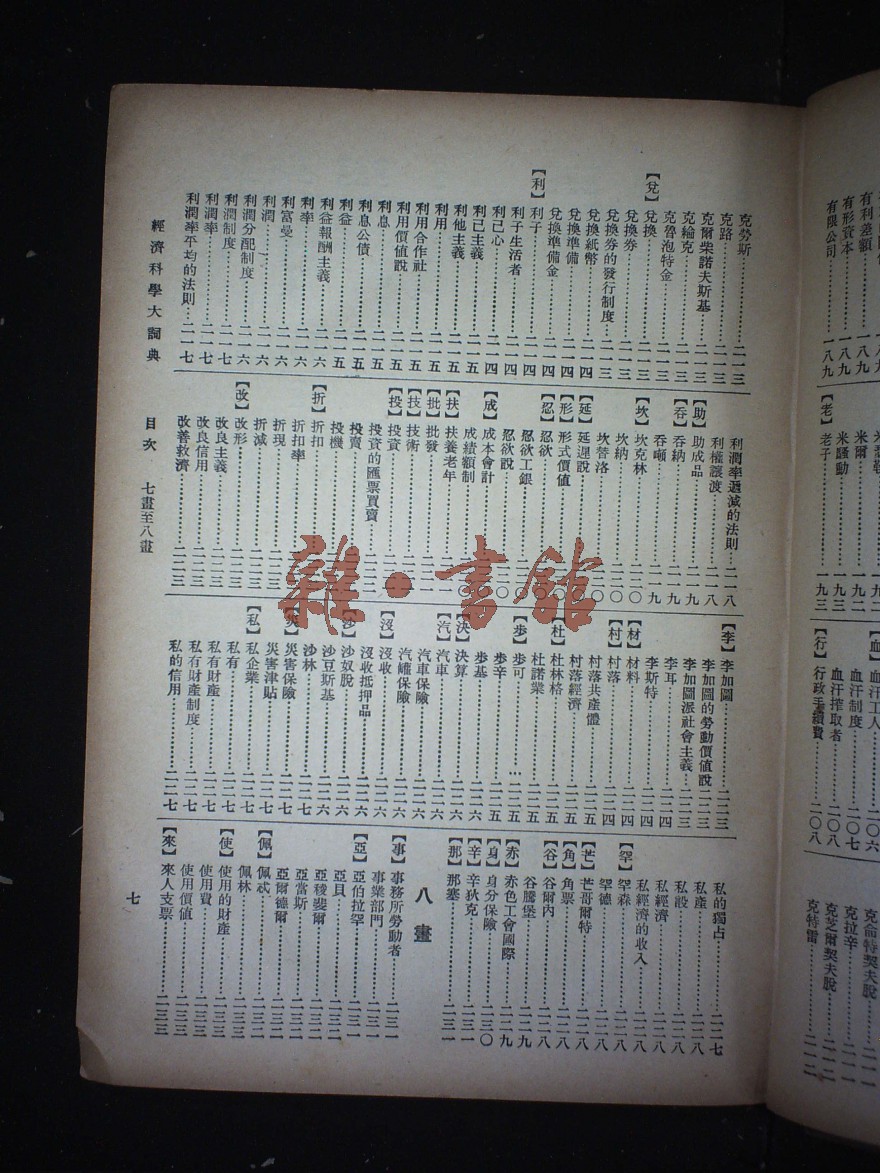 有利差額……一八九
有形資本……一八九
有限公司……一八九
米爾……一九二
米騷動……一九三
【老】老子……一九三
血汗工人……二〇六
血汗制度……二〇七
血汗搾取者……二〇八
【行】行政手續費……二〇八
克侖特契夫脫……二一一
克拉辛……二一一
克芝爾契夫脫……二一二
克特雷……二一二
克勞斯……二一三
克路……二一三
克爾柴諾夫斯基……二一三
克輪克……二一三
克魯泡特金……二一三
【兌】兌換……二一三
兌換券……二一三
兌換券的發行制度……二一三
兌換紙幣……二一四
兌換準備……二一四
兌換準備金……二一四
【利】利子……二一四
利子生活者……二一四
利己心……二一四
利己主義……二一五
利他主義……二一五
利用……二一五
利用合作社……二一五
利用價值說……二一五
利息……二一五
利息公債……二一五
利益……二一五
利益報酬主義……二一六
利率……二一六
利富曼……二一六
利潤……二一六
利潤分配制度……二一六
利潤制度……二一七
利潤率……二一七
利潤率平均的法則……二一七
利潤率遞減的法則……二一八
利權讓渡……二一八
【助】助成品……二一九
【吞】吞納……二一九
吞噸……二一九
【坎】坎克林……二二〇
坎納……二二〇
坎替洛
【延】延遲說
【形】形式價值
【忍】忍欲
忍欲工銀
忍欲說
【成】成本會計
成績額制
【扶】扶養老年
【批】批發
【技】技術
【投】投資
投資的匯票買賣
投賣
投機
【折】折扣
折扣率
折現……二二三
折減……二二三
【改】改形……二二三
改良主義……二二三
改良信用……二二三
改善救濟……二二三
【李】李加圖……二二三
李加圖的勞動價值說……二二三
李加圖派社會主義……二二三
李耳……二二四
李斯特……二二四
【材】材料……二二四
【村】村落……二二四
村落共產體……二二五
村落經濟……二二五
【杜】杜林格……二二五
杜諾業……二二五
【步】步可……二二五
步辛……二二五
步基……二二六
【決】決算……二二六
【汽】汽車……二二六
汽車保險……二二六
汽罐保險……二二六
【沒】沒收……二二六
沒收抵押品……二二六
【沙】沙奴脫……二二六
沙豆斯基……二二六
沙林……二二七
【災】災害保險……二二七
災害津貼……二二七
【私】私企業……二二七
私有……二二七
私有財產……二二七
私有財產制度……二二七
私的信用……二二七
私的獨占……二二七
私產……二二八
私股……二二八
私經濟……二二八
私經濟的收入……二二八
【罕】罕森……二二八
罕德……二二八
【芒】芒哥爾特……二二八
【角】角票……二二八
【谷】谷爾內……二二八
谷騰堡……二二九
【赤】赤色工會國際……二二九
【身】身分保險……二三〇
【辛】辛狄克……二三一
【那】那塞……二三一
八畫
【事】事務所勞動者……二三一
事業部門……二三一
【亞】亞伯拉罕……二三二
亞貝……二三二
亞稜斐爾……二三二
亞當斯……二三二
亞爾德爾……二三二
【佩】佩忒……二三二
佩林……二三二
【使】使用的財產……二三三
使用費……二三三
使用價值……二三三
【來】來人支票……二三三
經濟科學大詞典
目次
七畫至八畫
七
雜·書館